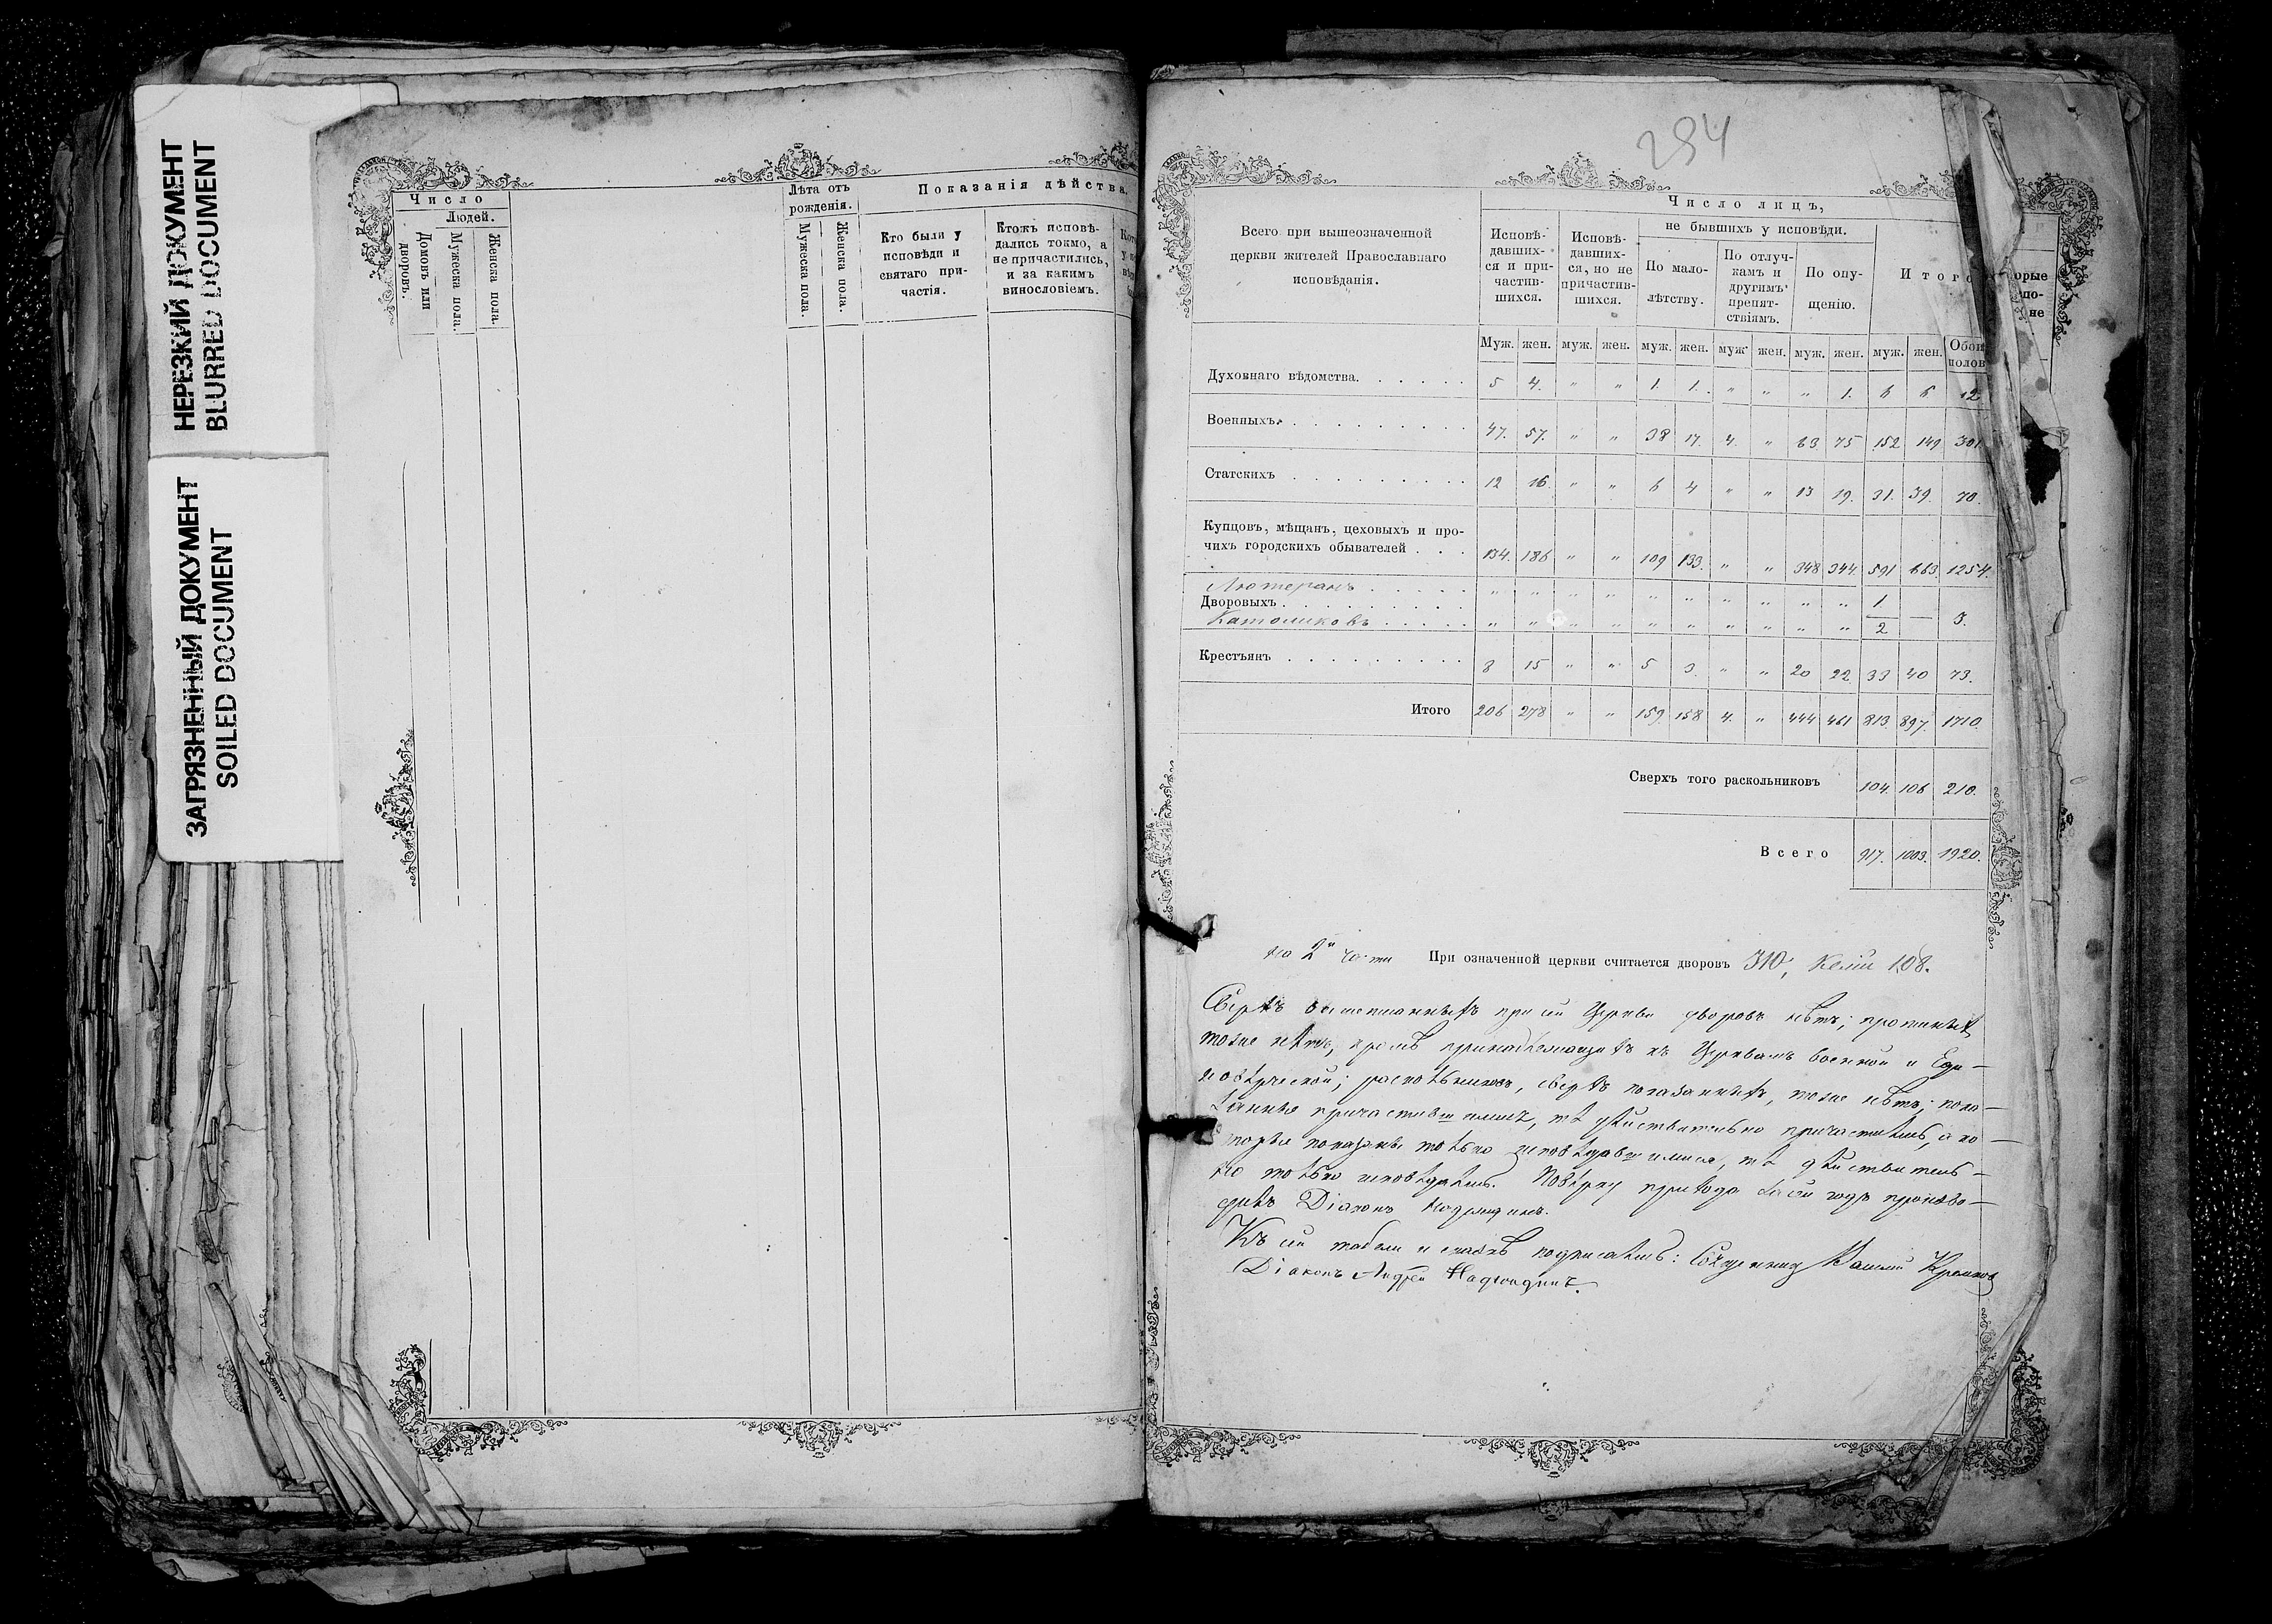 НЕРЕЗКИЙ ДОКУМЕНТ
BLURRED DOCUMENT
ЗАГРЯЗНЕННЫЙ ДОКУМЕНТ
SOILED DOCUMENT
Число
Людей.
Домовъ или дворовъ.
Мужеска пола.
Женска пола.
Лѣта отъ рожденія.
Мужеска пола.
Женска пола.
Показанія дѣйства.
Кто были у исповѣди и святаго причастія.
Ктожъ исповѣдались токмо, а не причастились, и за какимъ винословіемъ.
294
Всего при вышеозначенной
церкви жителей Православнаго
исповѣданія.
Число лицъ,
Исповѣдавшихся и причастившихся.
Исповѣдавшихся, но не причастившихся.
не бывшихъ у исповѣди.
По малолѣтству.
По отлучкамъ и другимъ препятствіямъ.
По опущенію.
Итого
орые
по-
не
Муж. жен. муж. жен. муж. жен. муж. жен. муж. жен. муж. жен. Обои полов
Духовнаго вѣдомства. 5 4. " " 1. 1. " " " 1. 6 6 12
Военныхъ. 47. 57. " " 38 17. 4. " 63 75 152 149 301
Статскихъ 12 16. " " 6 4 " " 13 19. 31. 39. 70.
Купцовъ, мѣщанъ, цеховыхъ и про-
чихъ городскихъ обывателей 134. 186 " " 109 133. " " 348 344. 591 663 1254.
Лютеранъ " " " " " " " " " " 1
Дворовыхъ
Католиковъ " " " " " " " " " " 2 — 3.
Крестьянъ 8 15 " " 5 3. " " 20 22 33 40 73.
Итого 206 278 " " 159 158 4. " 444 461 813. 897. 1710.
Сверхъ того раскольниковъ 104. 106 210.
Всего 917. 1003. 1920.
2й При означенной церкви считается дворовъ 310, келій 108.
Сверхъ вышеписанныхъ при сей Церкви дворовъ нѣтъ;
тоже нѣтъ, кромѣ принадлежащихъ къ Церквамъ военной и Еди-
новѣрческой; раскольниковъ, сверхъ показанныхъ, тоже нѣтъ; пока-
занные причастившимися, тѣ дѣйствительно причастились, а ко-
торые показаны только исповѣдавшимися, тѣ дѣйствитель-
но только исповѣдались. Повѣрку прихода за сей годъ произво-
дилъ Діаконъ
Къ сей табели и подписались: Священникъ Василій
Діаконъ Андрей